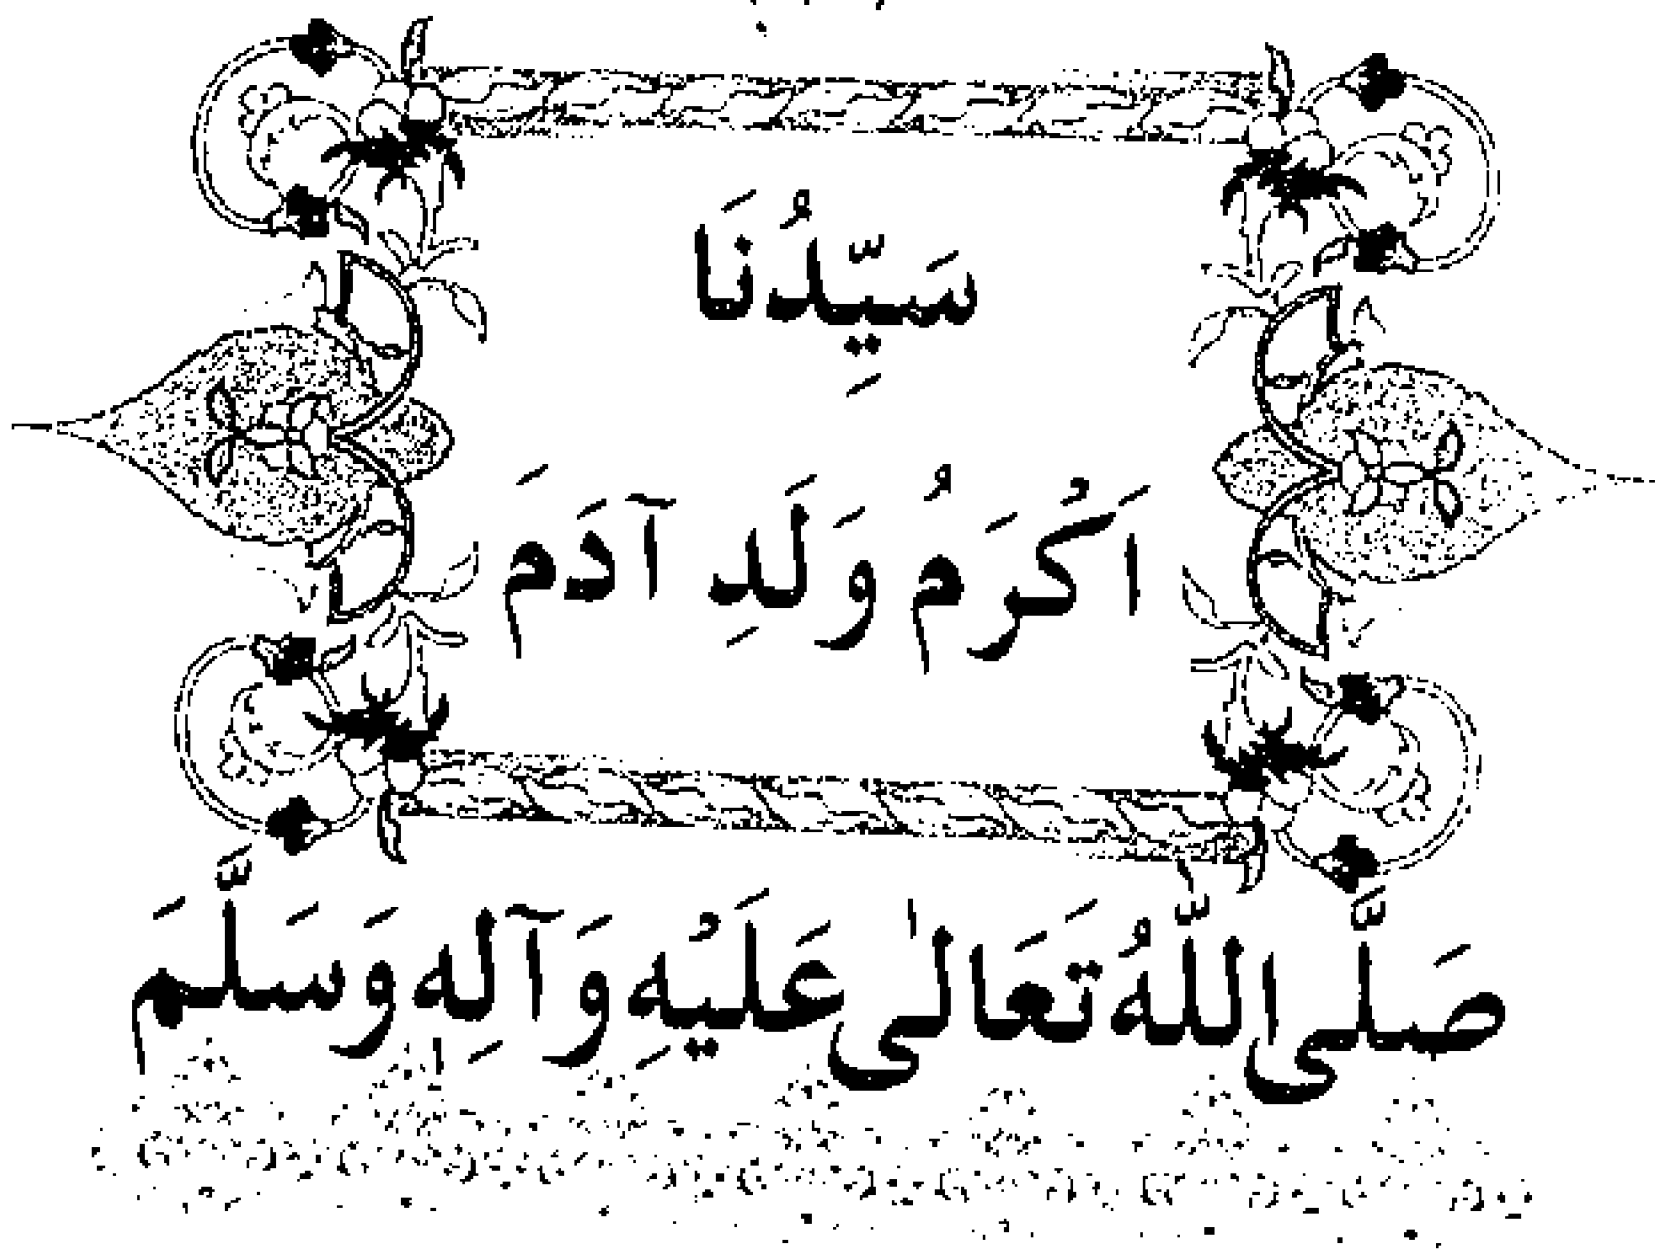 سَيِّدُنَا
اَكْرَمُ وَلَدِ آدَمَ
صَلَّى اللّٰهُ تَعَالٰى عَلَيْهِ وَآلِهٖ وَسَلَّمَ